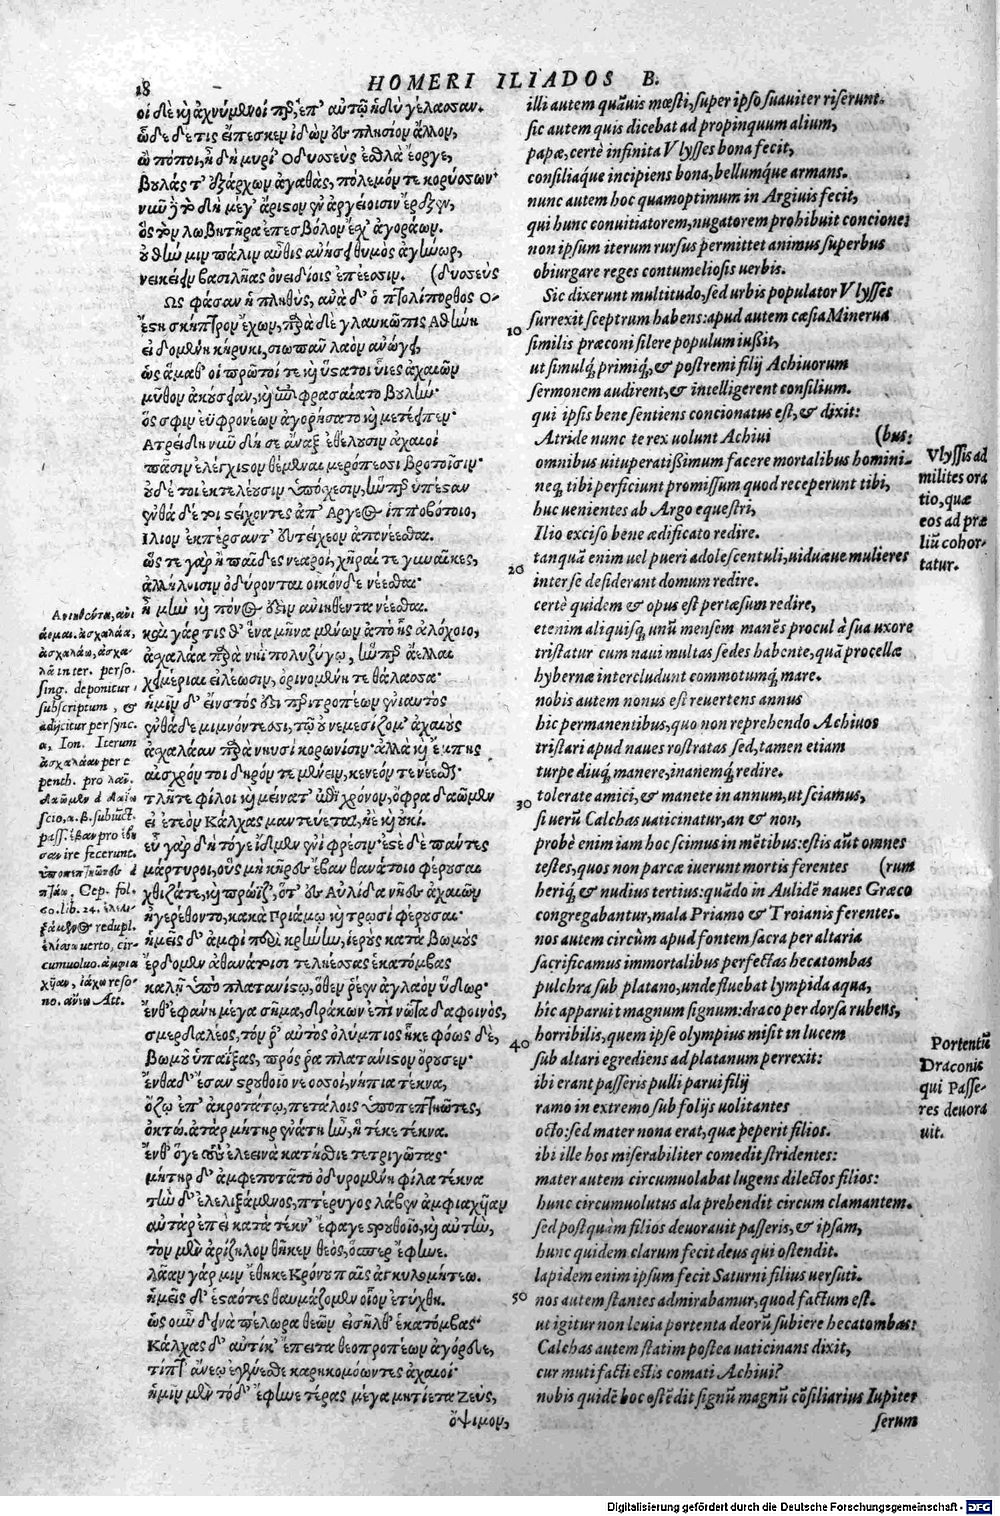 18
HOMERI ILIADOS B.
οἱ δὲ κὴ ἀχνύμενοί περ, ἐπ' αὐτῷ ἡδὺ γέλασαν.
ὧδε δέ τις εἴπεσκεν ἰδὼν ἐς πλησίον ἄλλον,
ὢ πόποι, ἦ δὴ μυρί' Ὀδυσεὺς ἐσθλὰ ἔοργε,
βουλάς τ' ἐξάρχων ἀγαθὰς, πόλεμόν τε κορύσσων·
νῦν δὲ τόδε μέγ' ἄριστον ἐν ἀργείοισιν ἔρεξεν,
ὃς τὸν λωβητῆρα ἐπεσβόλον ἔσχ' ἀγοράων.
οὔ θην μιν πάλιν αὖθις ἀνήσει θυμὸς ἀγήνωρ,
νεικείειν βασιλῆας ὀνειδίοις ἐπέεσσιν. (δυσεὺς
Ὣς φάσαν ἡ πληθὺς, ἀνὰ δ' ὁ πτολίπορθος Ὀ-
ἔστη σκῆπτρον ἔχων, παρὰ δὲ γλαυκῶπις Ἀθήνη
εἰδομένη κήρυκι, σιωπᾶν λαὸν ἀνώγει,
ὡς ἅμα θ' οἱ πρῶτοί τε κὴ ὕστατοι υἷες ἀχαιῶν
μῦθον ἀκούσειαν, κὴ ἐπιφρασσαίατο βουλήν·
ὅς σφιν ἐϋφρονέων ἀγορήσατο κὴ μετέειπεν·
Ἀτρείδη νῦν δή σε ἄναξ ἐθέλουσιν ἀχαιοὶ
πᾶσιν ἐλέγχιστον θέμεναι μερόπεσσι βροτοῖσιν·
οὐδέ τοι ἐκτελέουσιν ὑπόσχεσιν, ἥν περ ὑπέσταν
ἐνθάδ' ἔτι στείχοντες ἀπ' Ἄργεος ἱπποβότοιο,
Ἴλιον ἐκπέρσαντ' εὐτείχεον ἀπονέεσθαι.
ὥς τε γὰρ ἢ παῖδες νεαροὶ, χῆραί τε γυναῖκες,
ἀλλήλοισιν ὀδύρονται οἶκόνδε νέεσθαι·
ἦ μὴν κὴ πόνος ἐστὶν ἀνιηθέντα νέεσθαι.
καὶ γάρ τίς θ' ἕνα μῆνα μένων ἀπὸ ἧς ἀλόχοιο,
ἀσχαλάα παρὰ νηῒ πολυζύγῳ, ἥν περ ἄελλαι
χειμέριαι εἰλέωσιν, ὀρινομένη τε θάλασσα·
ἡμῖν δ' εἴνατός ἐστι περιτροπέων ἐνιαυτὸς
ἐνθάδε μιμνόντεσσι, τῷ οὐ νεμεσίζομ' ἀχαιοὺς
ἀσχαλάαν παρὰ νηυσὶ κορωνίσιν· ἀλλὰ κὴ ἔμπης
αἰσχρόν τοι δηρόν τε μένειν, κενεόν τε νέεσθαι·
τλῆτε φίλοι κὴ μείνατ' ἐπὶ χρόνον, ὄφρα δαῶμεν
εἰ ἐτεὸν Κάλχας μαντεύεται, ἠὲ κὴ οὐκί.
εὖ γὰρ δὴ τόγε ἴδμεν ἐνὶ φρεσὶν· ἐστὲ δὲ πάντες
μάρτυροι, οὓς μὴ κῆρες ἔβαν θανάτοιο φέρουσαι
χθιζά τε, κὴ πρώϊζ', ὅτ' ἐς Αὐλίδα νῆες ἀχαιῶν
ἠγερέθοντο, κακὰ Πριάμῳ κὴ τρωσὶ φέρουσαι·
ἡμεῖς δ' ἀμφὶ περὶ κρήνην, ἱεροὺς κατὰ βωμοὺς
ἔρδομεν ἀθανάτοισι τεληέσσας ἑκατόμβας
καλῇ ὑπὸ πλατανίστῳ, ὅθεν ῥέεν ἀγλαὸν ὕδωρ·
ἔνθ' ἐφάνη μέγα σῆμα, δράκων ἐπὶ νῶτα δαφοινὸς,
σμερδαλέος, τόν ῥ' αὐτὸς ὀλύμπιος ἧκε φόως δὲ,
βωμοῦ ὑπαΐξας, πρός ῥα πλατάνιστον ὄρουσεν·
ἔνθα δ' ἔσαν στρουθοῖο νεοσσοὶ, νήπια τέκνα,
ὄζῳ ἐπ' ἀκροτάτῳ, πετάλοις ὑποπεπτηῶτες,
ὀκτώ. ἀτὰρ μήτηρ ἐνάτη ἦν, ἣ τέκε τέκνα.
ἔνθ' ὅγε τοὺς ἐλεεινὰ κατήσθιε τετριγῶτας·
μήτηρ δ' ἀμφεποτᾶτο ὀδυρομένη φίλα τέκνα
τὴν δ' ἐλελιξάμενος, πτέρυγος λάβεν ἀμφιαχυῖαν
αὐτὰρ ἐπεὶ κατὰ τέκν' ἔφαγε στρουθοῖο, κὴ αὐτὴν,
τὸν μὲν ἀρίζηλον θῆκεν θεὸς, ὅσπερ ἔφηνε.
λᾶαν γάρ μιν ἔθηκε Κρόνου παῖς ἀγκυλομήτεω.
ἡμεῖς δ' ἑσταότες θαυμάζομεν οἷον ἐτύχθη.
ὡς οὖν δεινὰ πέλωρα θεῶν εἰσῆλθ' ἑκατόμβας·
Κάλχας δ' αὐτίκ' ἔπειτα θεοπροπέων ἀγόρευε,
τίπτ' ἄνεῳ ἐγένεσθε καρηκομόωντες ἀχαιοί·
ἡμῖν μὲν τόδ' ἔφηνε τέρας μέγα μητίετα Ζεὺς,
ὄψιμον,
Ἀνιηθέντα, ἀνι
άομαι. ἀσχαλάα,
ἀσχαλάω, ἀσχα-
λᾷ in ter. perso.
sing. deponitur,
subscriptum, &
adijcitur per sync.
α, Ion. Iterum
ἀσχαλάαν per e
penth. pro λᾶν.
δαῶμεν à δαίω
scio, α. β. subiuct.
pass. ἔβαν pro ἔβη
σαν ire fecerunt.
ὑποπεπτηῶτες à
πτάω. Cep. fol.
60. lib. 24. ἐλελι-
ξάμενος redupl.
ἑλίσσω uerto, cir-
cumuoluo. ἀμφια
χυῖαν, ἰάχω reso-
no. ἀνέῳ Att.
illi autem quāuis mœsti, super ipso suauiter riserunt.
sic autem quis dicebat ad propinquum alium,
papæ, certè infinita Vlysses bona fecit,
consiliaq́ue incipiens bona, bellumq́ue armans.
nunc autem hoc quamoptimum in Argiuis fecit,
qui hunc conuitiatorem, nugatorem prohibuit concione:
non ipsum iterum rursus permittet animus superbus
obiurgare reges contumeliosis uerbis.
Sic dixerunt multitudo, sed urbis populator Vlysses
surrexit sceptrum habens: apud autem cæsia Minerua
10
similis præconi silere populum iußit,
ut simulq́, primiq́, & postremi filij Achiuorum
sermonem audirent, & intelligerent consilium.
qui ipsis bene sentiens concionatus est, & dixit:
Atride nunc te rex uolunt Achiui (bus:
omnibus uituperatißimum facere mortalibus homini-
neq; tibi perficiunt promissum quod receperunt tibi,
huc uenientes ab Argo equestri,
Ilio exciso bene ædificato redire.
tanquā enim uel pueri adolescentuli, uiduæue mulieres
20
inter se desiderant domum redire.
certè quidem & opus est pertæsum redire,
etenim aliquisq; unū mensem manēs procul à sua uxore
tristatur cum naui multas sedes habente, quā procellæ
hybernæ intercludunt commotumq́; mare.
nobis autem nonus est reuertens annus
hic permanentibus, quo non reprehendo Achiuos
tristari apud naues rostratas sed, tamen etiam
turpe diuq́; manere, inanemq́; redire.
tolerate amici, & manete in annum, ut sciamus,
30
si uerū Calchas uaticinatur, an & non,
probè enim iam hoc scimus in mētibus: estis aūt omnes
testes, quos non parcæ iuerunt mortis ferentes (rum
heriq́; & nudius tertius: quādo in Aulidē naues Græco
congregabantur, mala Priamo & Troianis ferentes.
nos autem circùm apud fontem sacra per altaria
sacrificamus immortalibus perfectas hecatombas
pulchra sub platano, unde fluebat lympida aqua,
hic apparuit magnum signum: draco per dorsa rubens,
horribilis, quem ipse olympius misit in lucem
40
sub altari egrediens ad platanum perrexit:
ibi erant passeris pulli parui filij
ramo in extremo sub folijs uolitantes
octo: sed mater nona erat, quæ peperit filios.
ibi ille hos miserabiliter comedit stridentes:
mater autem circumuolabat lugens dilectos filios:
hunc circumuolutus ala prehendit circum clamantem.
sed postquàm filios deuorauit passeris, & ipsam,
hunc quidem clarum fecit deus qui ostendit.
lapidem enim ipsum fecit Saturni filius uersuti.
50
nos autem stantes admirabamur, quod factum est.
ut igitur non leuia portenta deorū subiere hecatombas:
Calchas autem statim postea uaticinans dixit,
cur muti facti estis comati Achiui?
nobis quidē hoc ostēdit signū magnū cōsiliarius Iupiter
serum
Vlyssis ad
milites ora
tio, quæ
eos ad præ
liū cohor-
tatur.
Portentū
Draconis
qui Passe-
res deuora
uit.
Digitalisierung gefördert durch die Deutsche Forschungsgemeinschaft - DFG